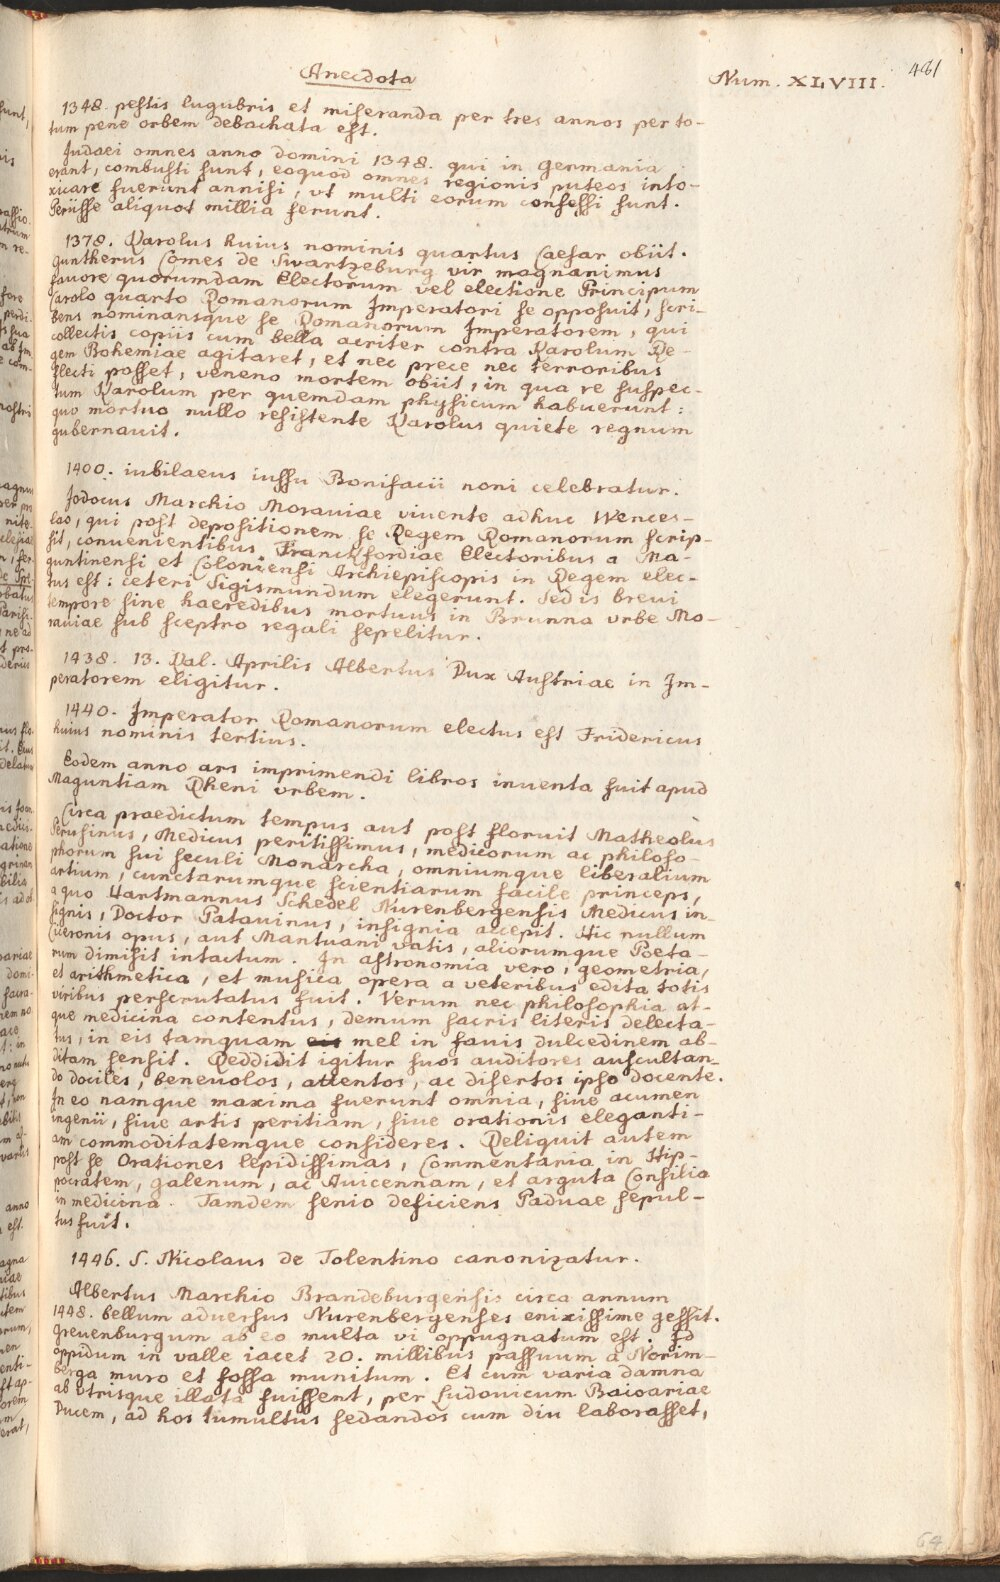 Anecdota
Num. XLVIII.
481
1348. pestis lugubris et miseranda per tres annos per to-
tum pene orbem debachata est.
Judaei omnes anno domini 1348. qui in Germania
erant, combusti sunt, eoquod omnes regionis puteos into-
xicare fuerunt annisi, vt multi eorum confessi sunt.
Periisse aliquot millia ferunt.
1378. Karolus huius nominis quartus Caesar obiit.
Guntherus Comes de Swartzeburg vir magnanimus
fauore quorumdam Electorum vel electione Principum
Carolo quarto Romanorum Imperatori se opposuit, scri-
bens nominansque se Romanorum Imperatorem, qui
collectis copiis cum bella acriter contra Karolum Re-
gem Bohemiae agitaret, et nec prece nec terroribus
flecti posset, veneno mortem obiit, in qua re suspec-
tum Karolum per quemdam physicum habuerunt:
quo mortuo nullo resistente Karolus quiete regnum
gubernauit.
1400. iubilaeus iussu Bonifacii noni celebratur.
Jodocus Marchio Morauiae viuente adhuc Wences-
lao, qui post depositionem se Regem Romanorum scrip-
sit, conuenientibus Franckfordiae Electoribus a Ma-
guntinensi et Coloniensi Archiepiscopis in Regem elec-
tus est: ceteri Sigismundum elegerunt. Sed is breui
tempore sine haeredibus mortuus in Brunna vrbe Mo-
rauiae sub sceptro regali sepelitur.
1438. 13. Kal. Aprilis Albertus Dux Austriae in Im-
peratorem eligitur.
1440. Imperator Romanorum electus est Fridericus
huius nominis tertius.
Eodem anno ars imprimendi libros inuenta fuit apud
Maguntiam Rheni vrbem.
Circa praedictum tempus aut post floruit Matheolus
Perusinus, Medicus peritissimus, medicorum ac philoso-
phorum sui seculi Monarcha, omniumque liberalium
artium, cunctarumque scientiarum facile princeps,
a quo Hartmannus Schedel Nurenbergensis Medicus in-
signis, Doctor Patauinus, insignia accepit. Hic nullum
Ciceronis opus, aut Mantuani vatis, aliorumque Poeta-
rum dimisit intactum. In astronomia vero, geometria,
et arithmetica, et musica opera a veteribus edita totis
viribus perscrutatus fuit. Verum nec philosophia at-
que medicina contentus, demum sacris literis delecta-
tus, in eis tamquam mel in fauis dulcedinem ab-
ditam sensit. Reddidit igitur suos auditores auscultan-
do dociles, beneuolos, attentos, ac disertos ipso docente.
In eo namque maxima fuerunt omnia, siue acumen
ingenii, siue artis peritiam, siue orationis eleganti-
am commoditatemque consideres. Reliquit autem
post se Orationes lepidissimas, Commentaria in Hip-
pocratem, Galenum, ac Auicennam, et arguta Consilia
in medicina. Tamdem senio deficiens Paduae sepul-
tus fuit.
1446. S. Nicolaus de Tolentino canonizatur.
Albertus Marchio Brandeburgensis circa annum
1448. bellum aduersus Nurenbergenses enixissime gessit.
Greuenburgum ab eo multa vi oppugnatum est. Id
oppidum in valle iacet 20. millibus passuum a Norim-
berga muro et fossa munitum. Et cum varia damna
ab vtrisque illata fuissent, per Ludouicum Baioariae
Ducem, ad hos tumultus sedandos cum diu laborasset,
64